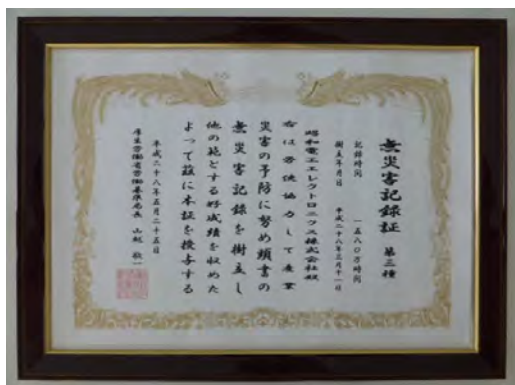 無災害記録証 第三種
記録時間 一五八〇万時間
樹立月日 平成二十八年三月十一日
昭和電工エレクトロニクス株式会社殿
右は労使協力して産業
災害の予防に努め頭書の
無災害記録を樹立し
他の範とする好成績を収めた
よって茲に本証を授与する
平成二十八年五月二十五日
厚生労働省労働基準局長 山越 敬一